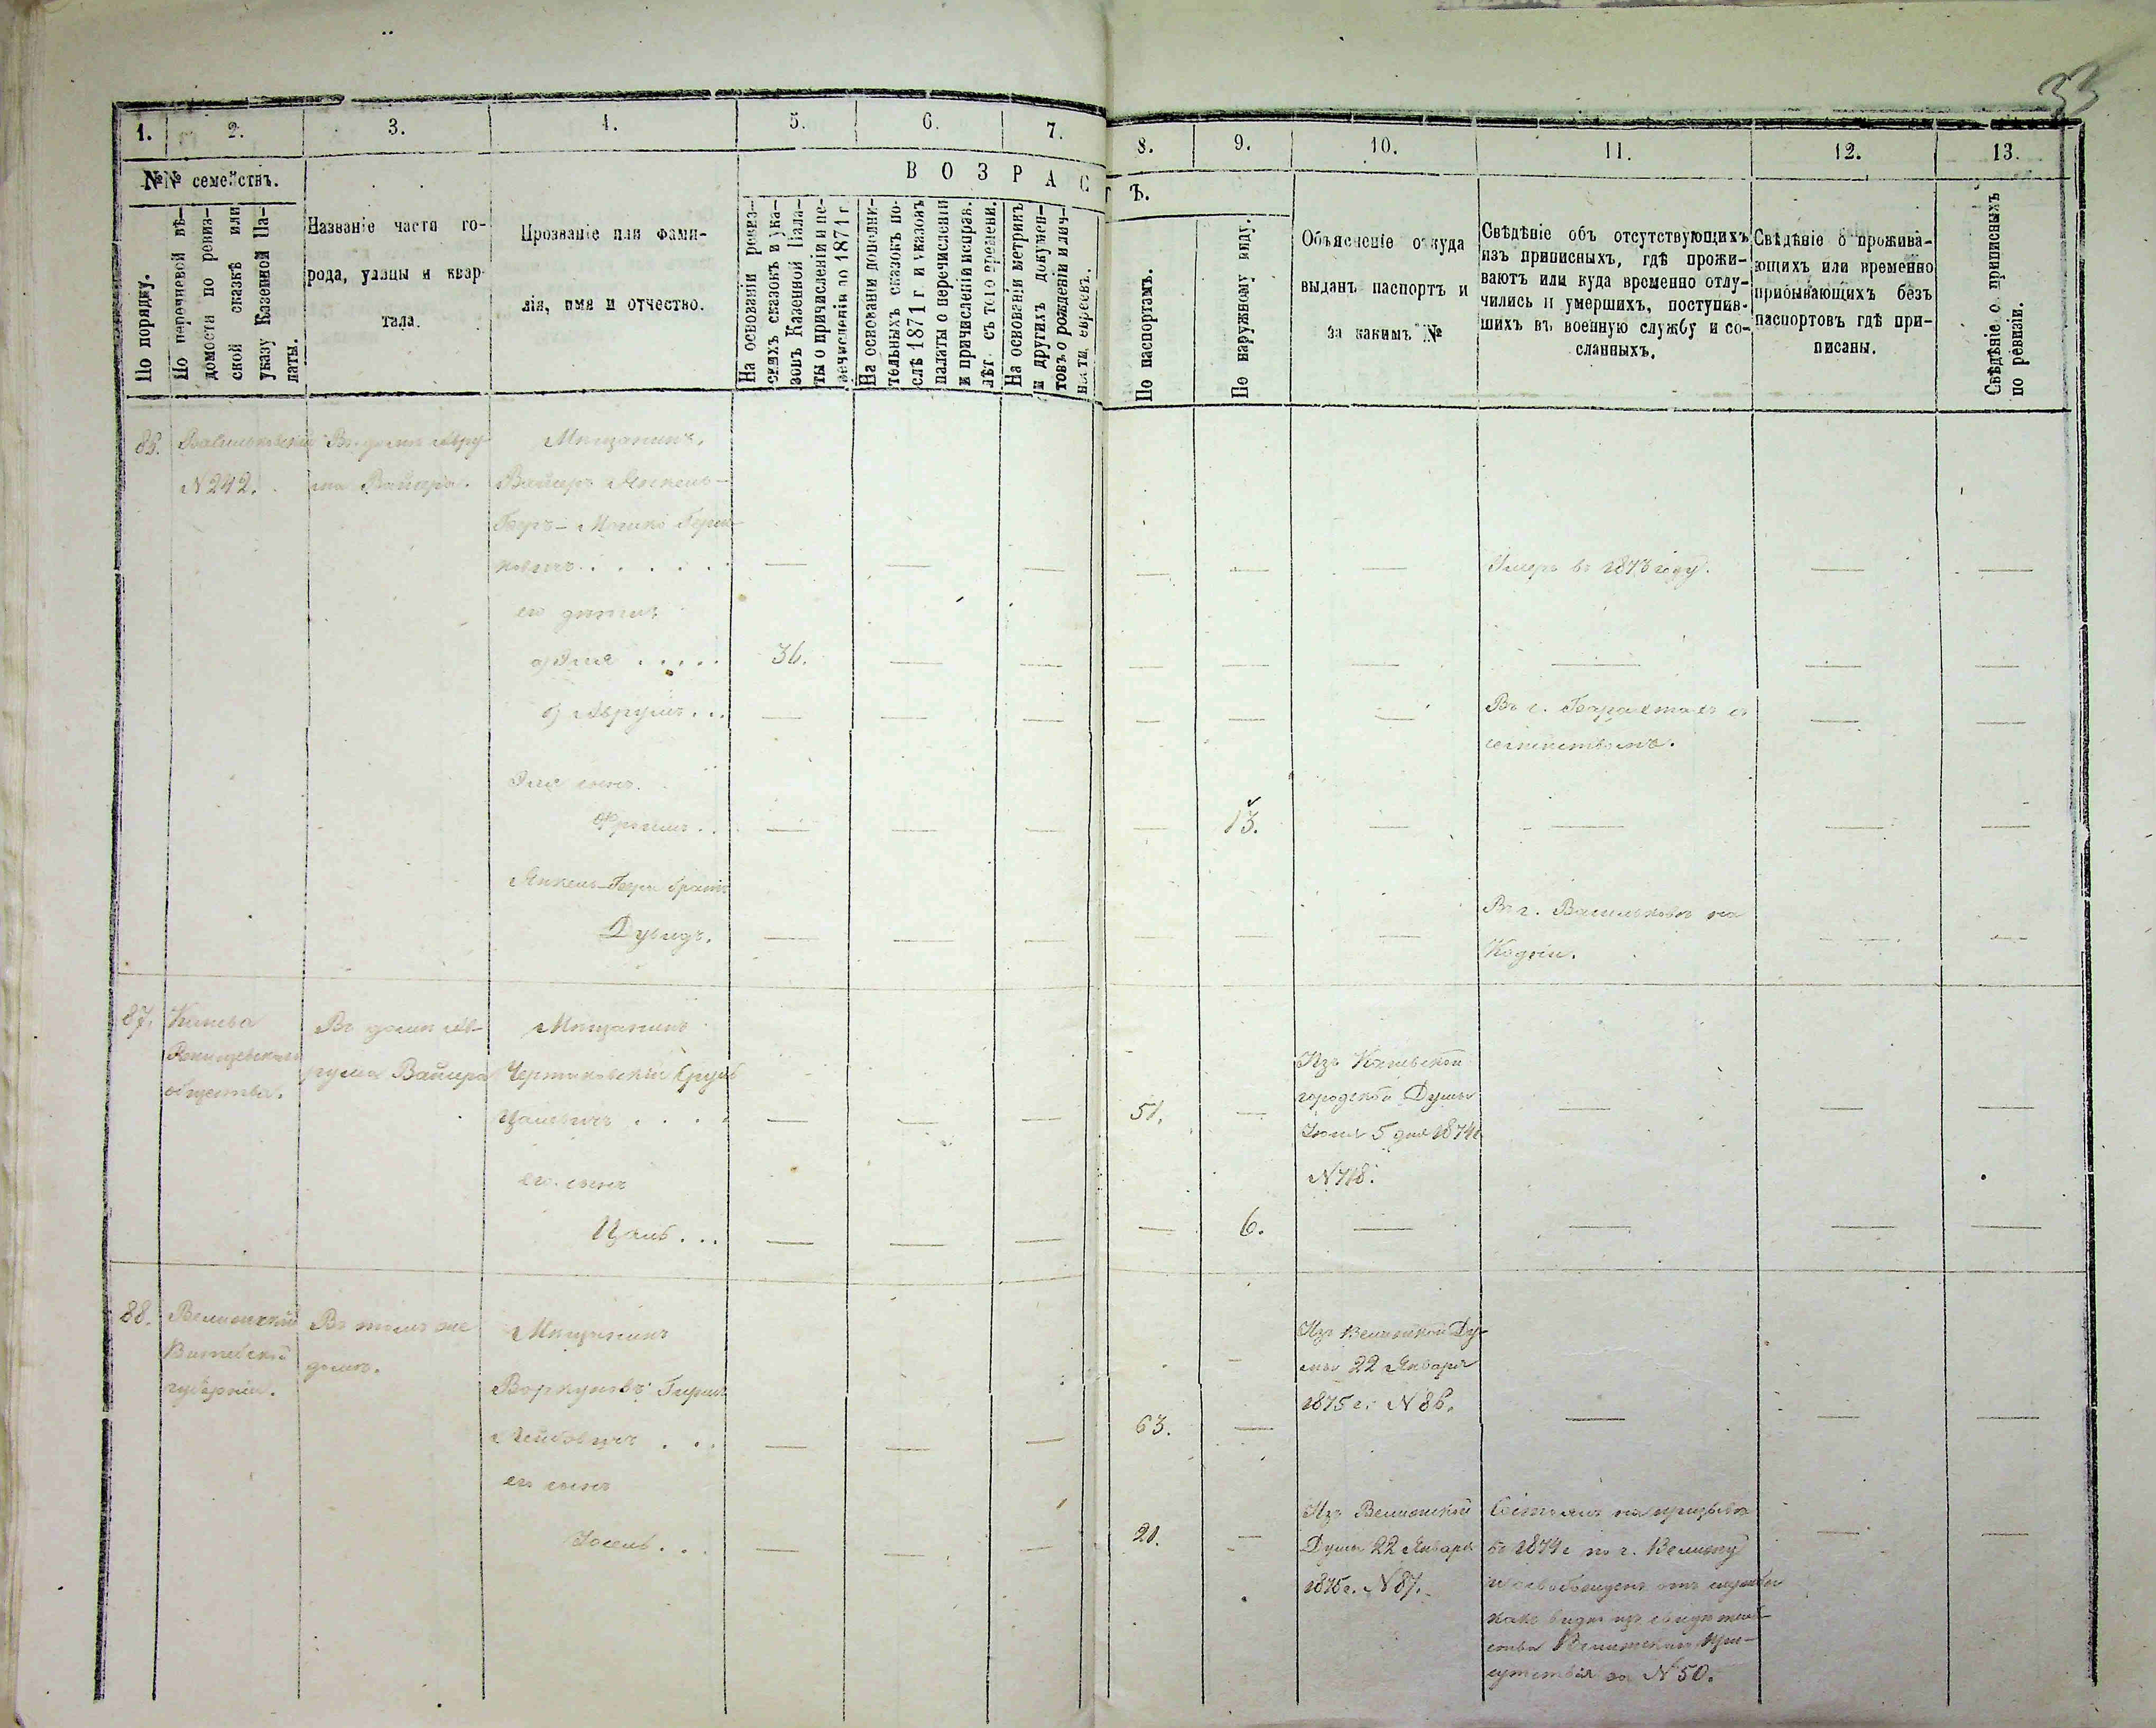 33
1. 2. 3. 4. 5. 6. 7. 8. 9. 10. 11. 12. 13.
№№ семействъ.
По порядку.
По перечневой вѣ-
домости по ревиз-
ской сказкѣ или
указу Казенной Па-
латы.
Названіе части го-
рода, улицы и квар-
тала.
Прозваніе или фами-
лія, имя и отчество.
ВОЗРАСТЪ.
На основаніи ревиз-
скихъ сказокъ и ука-
зовъ Казенной Пала-
ты о причисленіи и пе-
речисленіи до 1871 г.
На основаніи дополни-
тельныхъ сказокъ по-
слѣ 1871 г. и указовъ
палаты о перечисленіи
и причисленіи исправ.
лѣт съ того времени.
На основаніи метрикъ
и другихъ докумен-
товъ о рожденіи и лич-
ности евреевъ.
По паспортамъ.
По наружному виду.
Объясненіе откуда
выданъ паспортъ и
за какимъ №
Свѣдѣніе объ отсутствующихъ
изъ приписныхъ, гдѣ прожи-
ваютъ или куда временно отлу-
чились и умершихъ, поступив-
шихъ въ военную службу и со-
сланныхъ.
Свѣдѣніе о прожива-
ющихъ или временно
прибывающихъ безъ
паспортовъ гдѣ при-
писаны.
Свѣдѣніе о приписныхъ
по ревизіи.
86. Васильковскій Въ домѣ Авру- Мѣщанинъ.
N 242. ма Вайнера. Вайнеръ Янкель-
Геръ-Мошко Герш-
ковичъ . . . . . — — — — — — Умеръ въ 1873 году. — —
его дѣти:
а) Эля . . . . . 36. — — — — — — — —
б) Аврумъ . . . — — — — — — Въ с. с
семействомъ. — —
Эля сынъ.
Фроимъ . . — — — — 13. — — — —
Янкель-Гера братъ
Дувидъ. — — — — — — Въ г. Васильковѣ на
— —
87. Канева Въ домѣ Ав- Мѣщанинъ
общества. рума Вайнера Чертаковскій Сруль
Цалевичъ . . . . — — — 51. — Изъ Каневской
городской Думы
Іюня 5 дня 1874 г.
N 718. — — —
его сынъ
Цаль . . . — — — — 6. — — — —
88. Велижскій Въ томъ же Мѣщанинъ
Витебской домѣ.
губерніи. Воркуновъ Гирша
Лейбовичъ . . . — — — 63. — Изъ Велижской Ду-
мы 22 Января
1875 г. N 86. — — —
его сынъ
Іосель . . . — — — 21. — Изъ Велижской
Думы 22 Января
1875 г. N 87.
Состоялъ на призывѣ
въ 1874 г. по г. Велижу
и освобожденъ отъ службы
какъ видно изъ свидѣтель-
ства Велижскаго При-
сутствія за N 50. — —